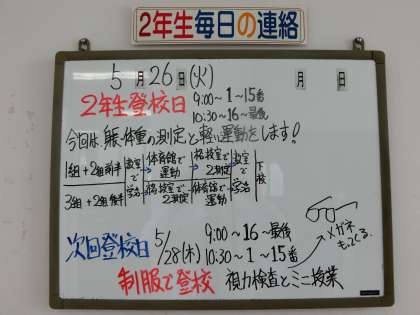 2年生毎日の連絡
5月26日(火) 月 日
2年生登校日 9:00~1~15番
10:30~16~最後
今回は、身長・体重の測定と軽い運動をします!
1組+2組前半 教室で 体育館で運動 格技室で測定 教室で 下校
3組+2組後半 格技室で測定 体育館で運動
次回登校日 5/28(木) 9:00~16~最後
10:30~1~15番
メガネもってくる。
制服で登校 視力検査とミニ授業